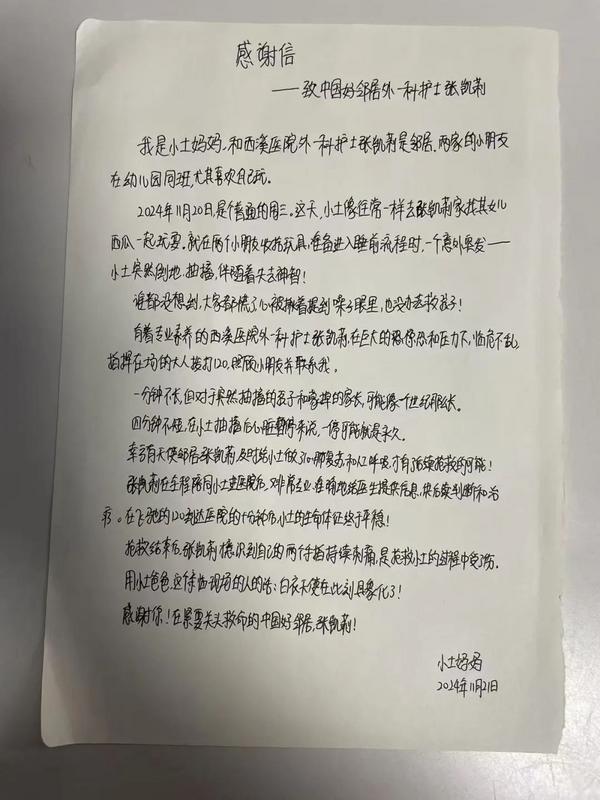 感谢信
——致中国好邻居外一科护士张凯莉
我是小土妈妈,和西溪医院外一科护士张凯莉是邻居。两家的小朋友
在幼儿园同班,尤其喜欢一起玩。
2024年11月20日,是个普通的周三。这天,小土像往常一样去张凯莉家找其女儿
西瓜一起玩耍。就在两个小朋友收拾玩具,准备进入睡前流程时,一个意外突发——
小土突然倒地、抽搐,伴随着失去神智!
谁都没想到,大家都慌了,心被揪着提到嗓子眼里,也没办法救孩子!
有着专业素养的西溪医院外一科护士张凯莉,在巨大的惊恐和压力下,临危不乱,
指挥在场的大人拨打120、照顾小朋友并联系我。
一分钟不长,但对于突然抽搐的孩子和家长,可能像一个世纪那么长。
四分钟不短,在小土抽搐后心脏暂停来说,一停可能就是永久。
幸亏有天使邻居张凯莉,及时给小土做了心肺复苏和人工呼吸,才有了后续抢救的可能!
张凯莉在全程陪同小土进医院后,又非常专业、准确地给医生提供信息,供后续判断和治
疗。在飞驰的120到达医院的十分钟后,小土的生命体征终于平稳!
抢救结束后,张凯莉才意识到自己的两个手指持续刺痛,是抢救小土的过程中受了伤。
用小土爸爸,这个事出现场的人的话:白衣天使在此刻具象化了!
感谢你!在紧要关头救命的中国好邻居,张凯莉!
小土妈妈
2024年11月21日